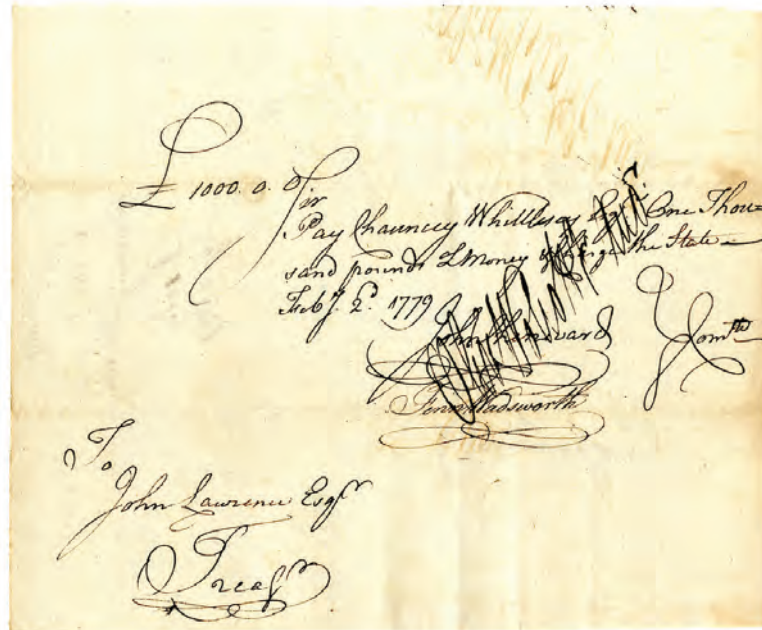 £ 1000. 0. 0 Sir
Pay Chauncey Whittlesey Esqr. One Thou=
sand pounds L Money & Charge the State
Feby. 2d. 1779
John Chenevard Comtte
Fenn Wadsworth
To
John Lawrence Esqr
Treasr